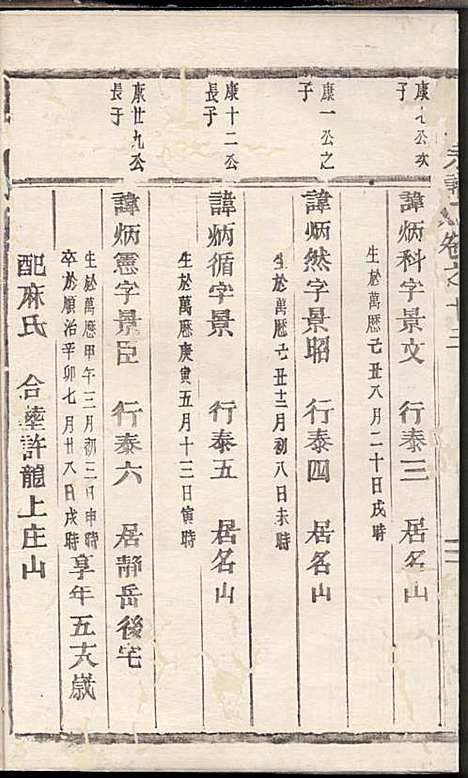 宗譜卷之十三
康七公次子
諱炳科字景文 行泰三 居名山
生於萬曆己丑八月二十日戌時
康一公之子
諱炳然字景昭 行泰四 居名山
生於萬曆己丑十二月初八日未時
康十二公長子
諱炳循字景 行泰五 居名山
生於萬曆庚寅五月十三日寅時
康廿九公長子
諱炳憲字景臣 行泰六 居靜岳後宅
生於萬曆甲午三月初三日申時
卒於順治辛卯七月廿八日戌時享年五十八歲
配麻氏 合塟許龍上庄山